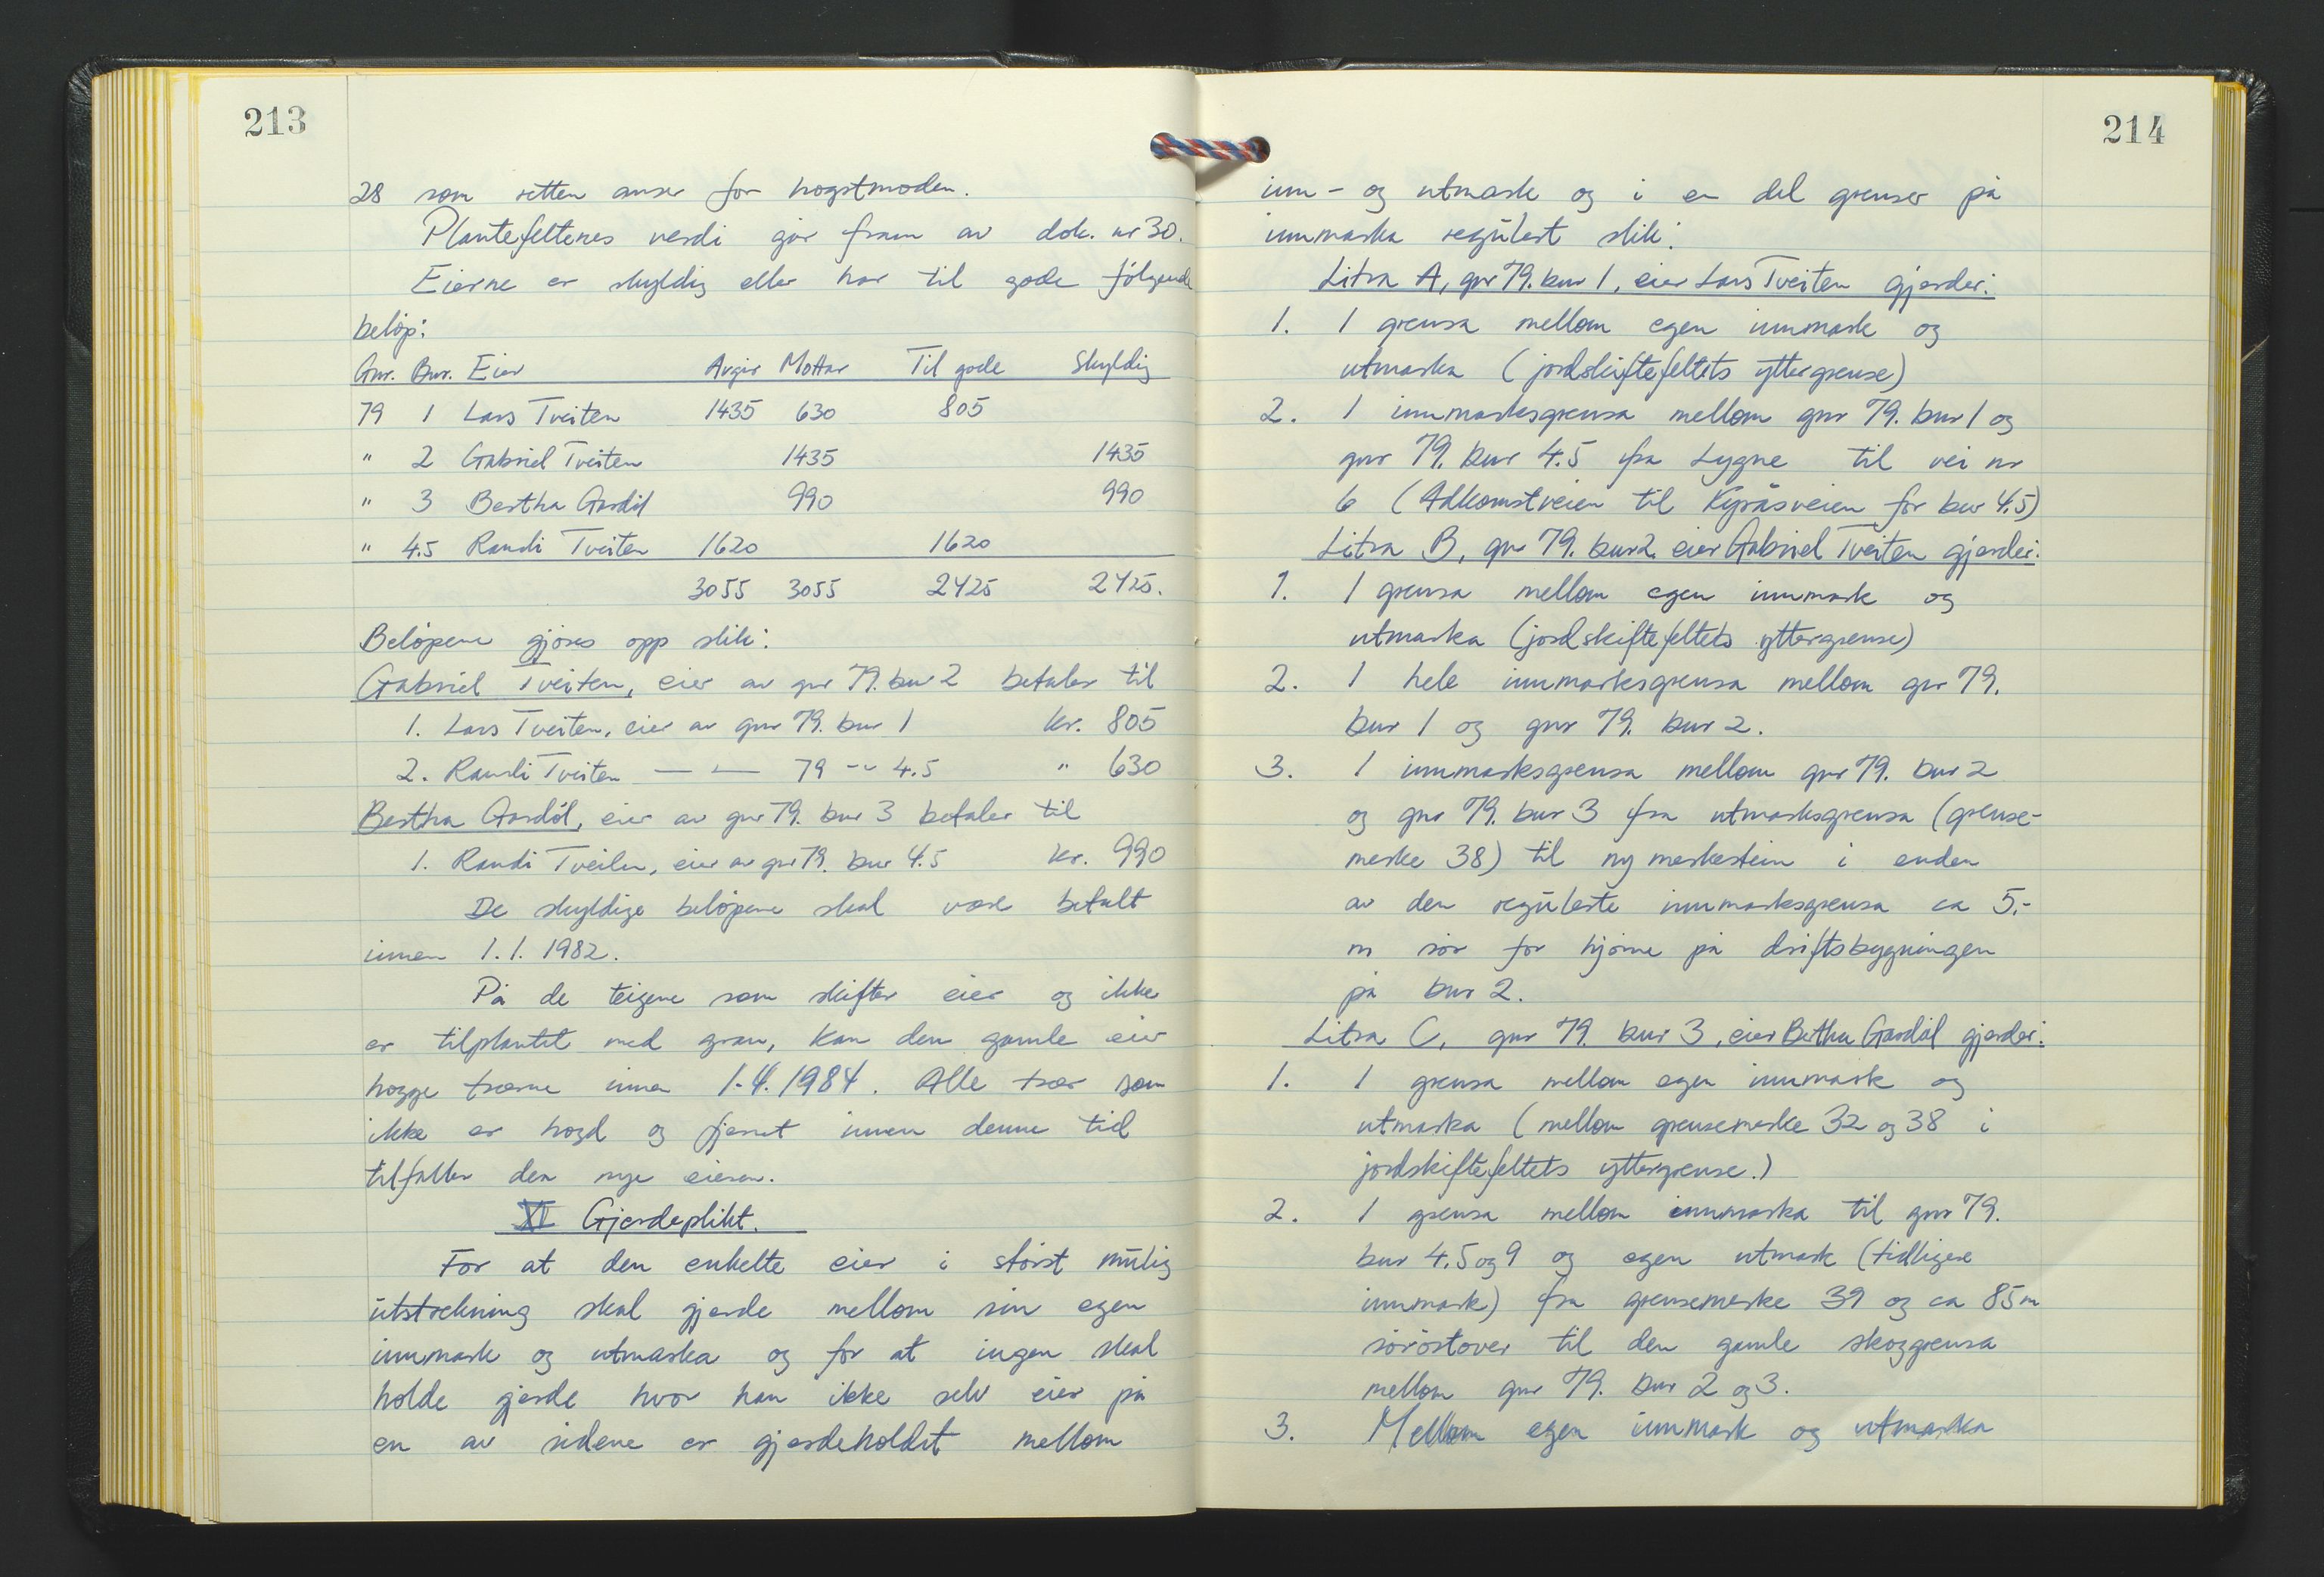 213
28 som retten anser for hogstmoden.
Plantefeltenes verdi går fram av dok. nr 30.
Eierne er skyldig eller har til gode følgende
beløp:
Gnr. Bnr. Eier Avgir Mottar Til gode Skyldig
79 1 Lars Tveiten 1435 630 805
" 2 Gabriel Tveiten 1435 1435
" 3 Bertha Gardøl 990 990
" 4.5 Randi Tveiten 1620 1620
3055 3055 2425 2425.
Beløpene gjøres opp slik:
Gabriel Tveiten, eier av gnr 79. bnr 2 betaler til
1. Lars Tveiten, eier av gnr 79. bnr 1 kr. 805
2. Randi Tveiten — — 79 -"- 4.5 " 630
Bertha Gardøl, eier av gnr 79. bnr 3 betaler til
1. Randi Tveiten, eier av gnr 79. bnr 4.5 kr. 990
De skyldige beløpene skal være betalt
innen 1.1. 1982.
På de teigene som skifter eier og ikke
er tilplantet med gran, kan den gamle eier
hogge trærne innen 1.4.1984. Alle trær som
ikke er hogd og fjernet innen denne tid
tilfaller den nye eieren.
XI Gjerdeplikt.
For at den enkelte eier i størst mulig
utstrekning skal gjerde mellom sin egen
innmark og utmarka og for at ingen skal
holde gjerde hvor han ikke selv eier på
en av sidene er gjerdeholdet mellom
214
inn- og utmark og i en del grenser på
innmarka regulert slik:
Litra A, gnr 79. bnr 1, eier Lars Tveiten gjerder:
1. I grensa mellom egen innmark og
utmarka (jordskiftefeltets yttergrense)
2. I innmarksgrensa mellom gnr 79. bnr 1 og
gnr 79. bnr 4.5 fra Lygne til vei nr
6 (Adkomstveien til Kyråsveien for bnr 4.5)
Litra B, gnr 79. bnr 2, eier Gabriel Tveiten gjerder:
1. I grensa mellom egen innmark og
utmarka (jordskiftefeltets yttergrense)
2. I hele innmarksgrensa mellom gnr 79.
bnr 1 og gnr 79. bnr 2.
3. I innmarksgrensa mellom gnr 79. bnr 2
og gnr 79. bnr 3 fra utmarksgrensa (grense-
merke 38) til ny merkestein i enden
av den regulerte innmarksgrensa ca 5,-
m sør for hjørne på driftsbygningen
på bnr 2.
Litra C, gnr 79. bnr 3, eier Bertha Gardøl gjerder:
1. I grensa mellom egen innmark og
utmarka (mellom grensemerke 32 og 38 i
jordskiftefeltets yttergrense.)
2. I grensa mellom innmarka til gnr 79.
bnr 4.5 og 9 og egen utmark (tidligere
innmark) fra grensemerke 39 og ca 85 m
sørøstover til den gamle skoggrensa
mellom gnr 79. bnr 2 og 3.
3. Mellom egen innmark og utmarka